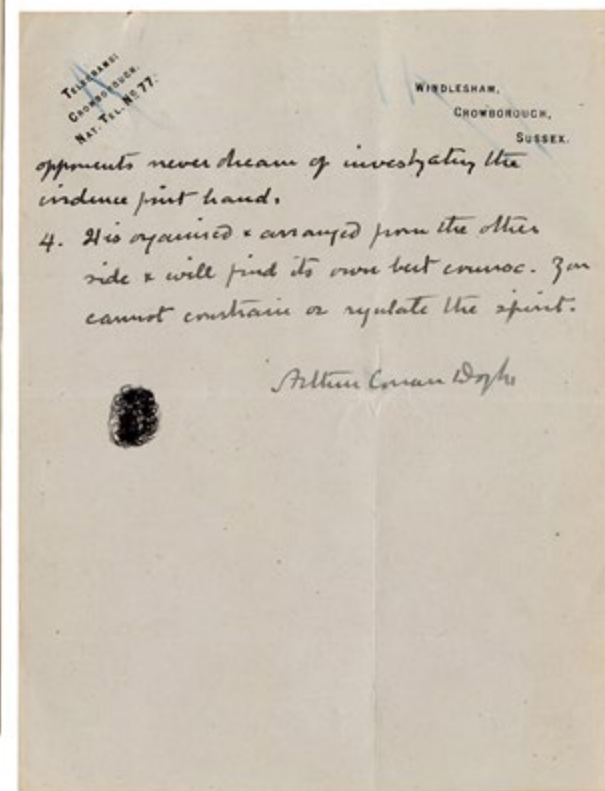 TELEGRAMS:
CROWBOROUGH.
NAT. TEL. NO 77.
WINDLESHAM,
CROWBOROUGH,
SUSSEX.
opponents never dream of investigating the
evidence first hand.
4. It is organised & arranged from the other
side & will find its own best course. You
cannot constrain or regulate the spirit.
Arthur Conan Doyle